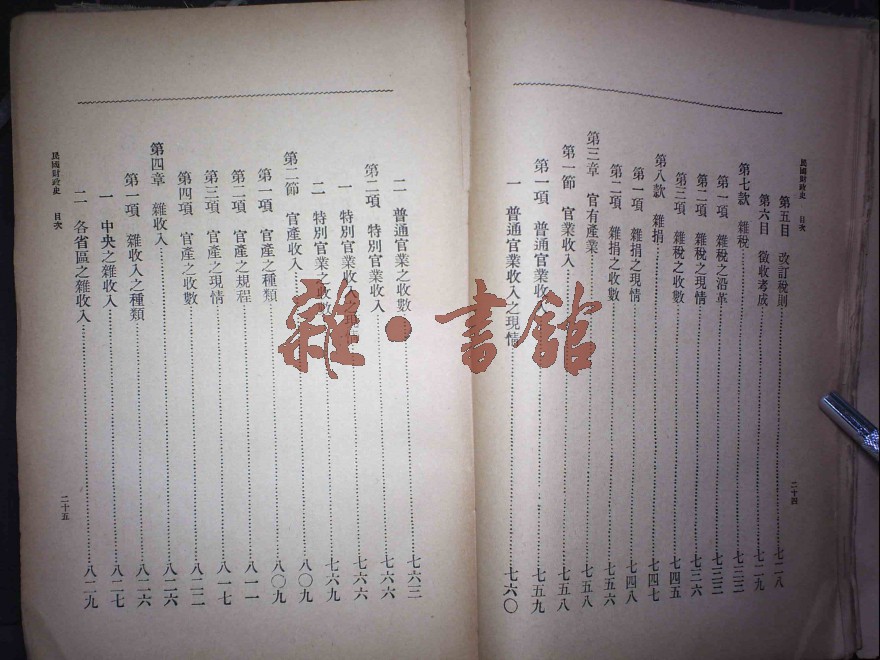 民國財政史 目次
二十四
第五目 改訂稅則……七二八
第六目 徵收考成……七二九
第七款 雜稅……七三三
第一項 雜稅之沿革……七三三
第二項 雜稅之現情……七三六
第三項 雜稅之收數……七四五
第八款 雜捐……七四七
第一項 雜捐之現情……七四八
第二項 雜捐之收數……七五六
第三章 官有產業……七五八
第一節 官業收入……七五八
第一項 普通官業收入……七五九
一 普通官業收入之現情……七六〇
二 普通官業之收數……七六三
第二項 特別官業收入……七六六
一 特別官業收入之現情……七六六
二 特別官業之收數……七六九
第二節 官產收入……八〇九
第一項 官產之種類……八〇九
第二項 官產之規程……八一一
第三項 官產之現情……八一七
第四項 官產之收數……八二二
第四章 雜收入……八二六
第一項 雜收入之種類……八二六
一 中央之雜收入……八二七
二 各省區之雜收入……八二九
民國財政史 目次
二十五
雜·書館